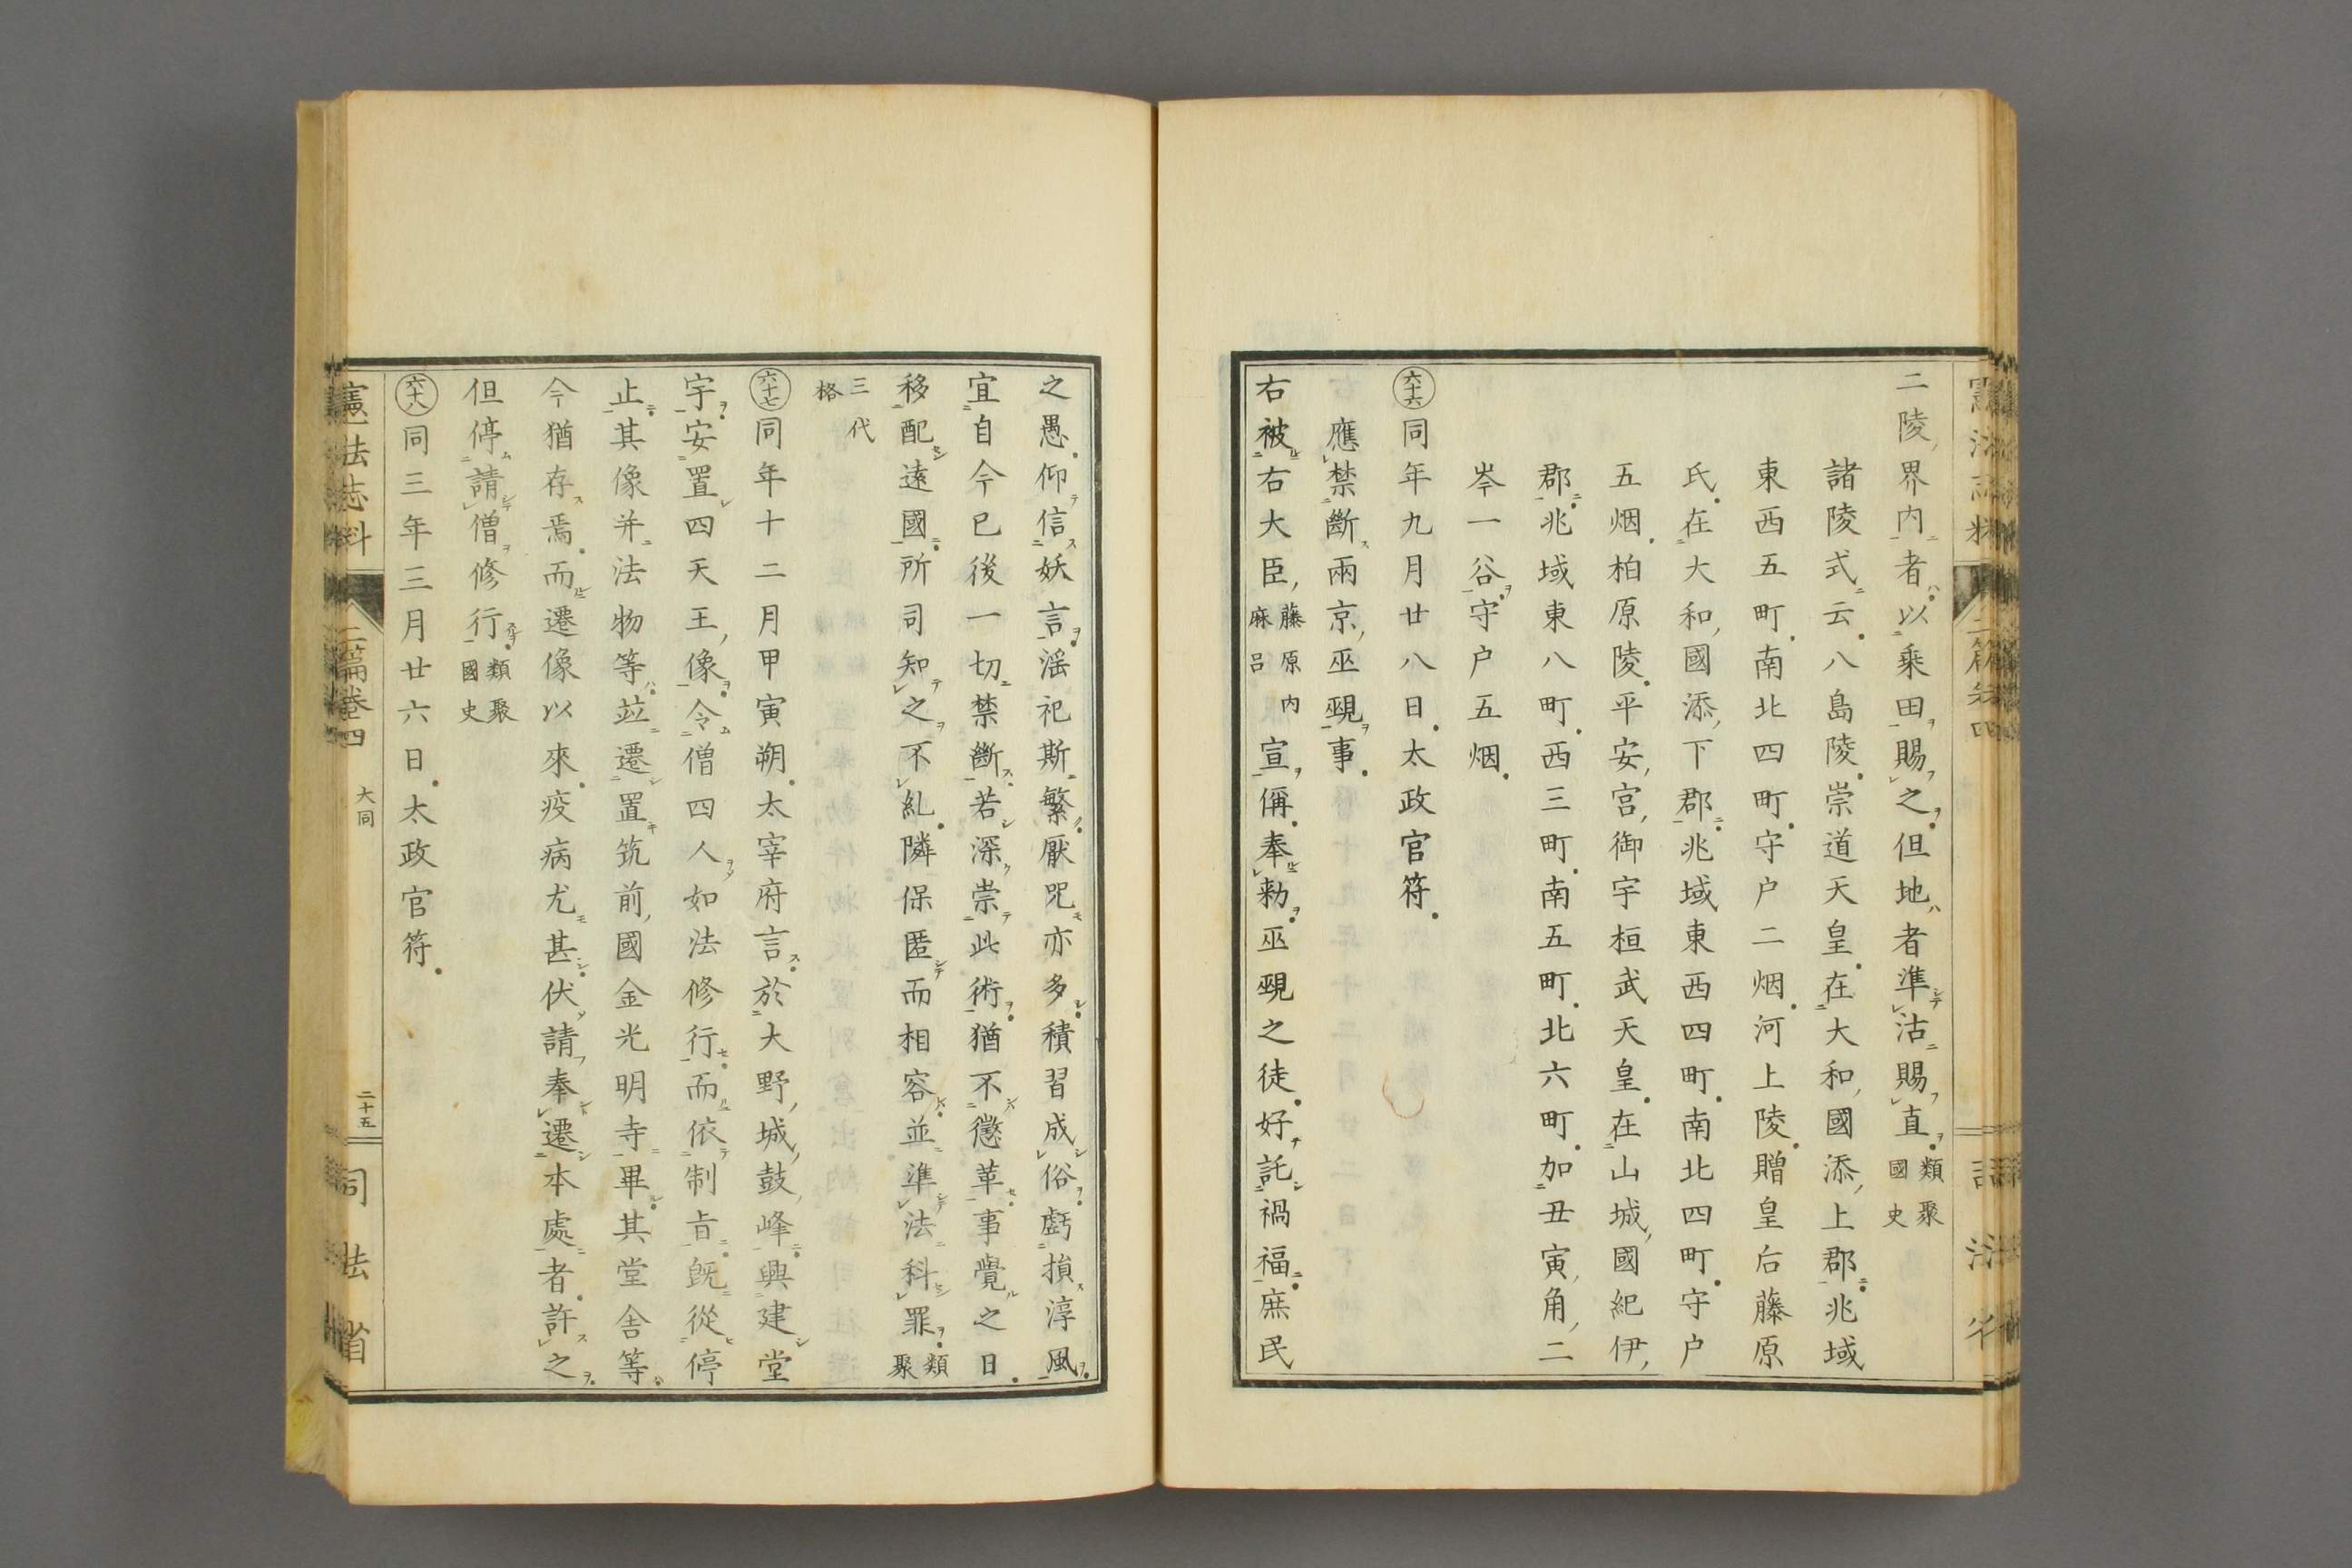 二陵界内者以乗田賜之但地者準沽賜直類聚國史
諸陵式云八島陵崇道天皇在大和國添上郡兆域
東西五町南北四町守户二烟河上陵贈皇后藤原
氏在大和國添下郡兆域東西四町南北四町守户
五烟柏原陵平安宮御宇桓武天皇在山城國紀伊
郡兆域東八町西三町南五町北六町加丑寅角二
岑一谷守户五烟
六十六同年九月廿八日太政官符
應禁斷兩京巫覡事
右被右大臣藤原内麻呂宣偁奉勅巫覡之徒好託禍福庶民
之愚仰信妖言淫祀斯繁厭咒亦多積習成俗虧損淳風
宜自今已後一切禁斷若深崇此術猶不懲革事覺之日
移配遠國所司知之不糺隣保匿而相容並準法科罪類聚
三代格
六十七同年十二月甲寅朔太宰府言於大野城鼓峰興建堂
宇安置四天王像令僧四人如法修行而依制旨既從停
止其像并法物等竝遷置筑前國金光明寺畢其堂舎等
今猶存焉而遷像以來疫病尤甚伏請奉遷本處者許之
但停請僧修行類聚國史
六十八同三年三月廿六日太政官符
憲法志料 二篇卷四 大同 二十五 司法省